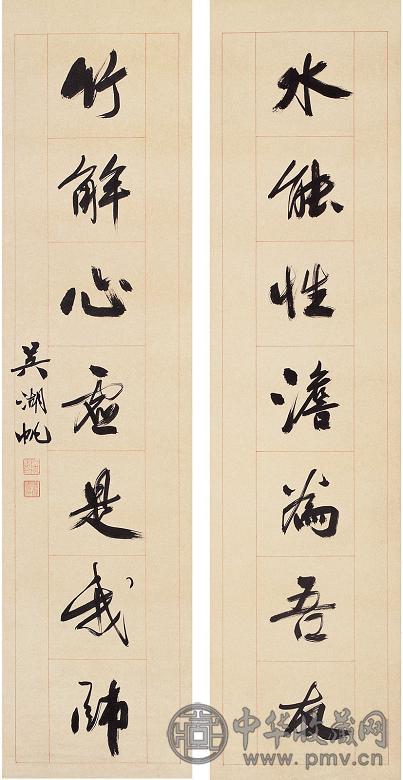 水能性澹為吾友
竹解心虛是我師
吳湖帆
中华收藏网
www.pmv.cn